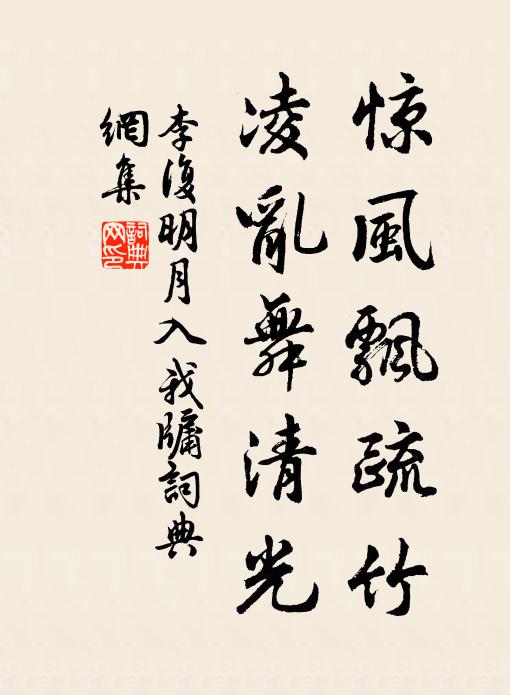 惊風飄疏竹
凌亂舞清光
李復明月入我牖詞典
網集
詞典
网印